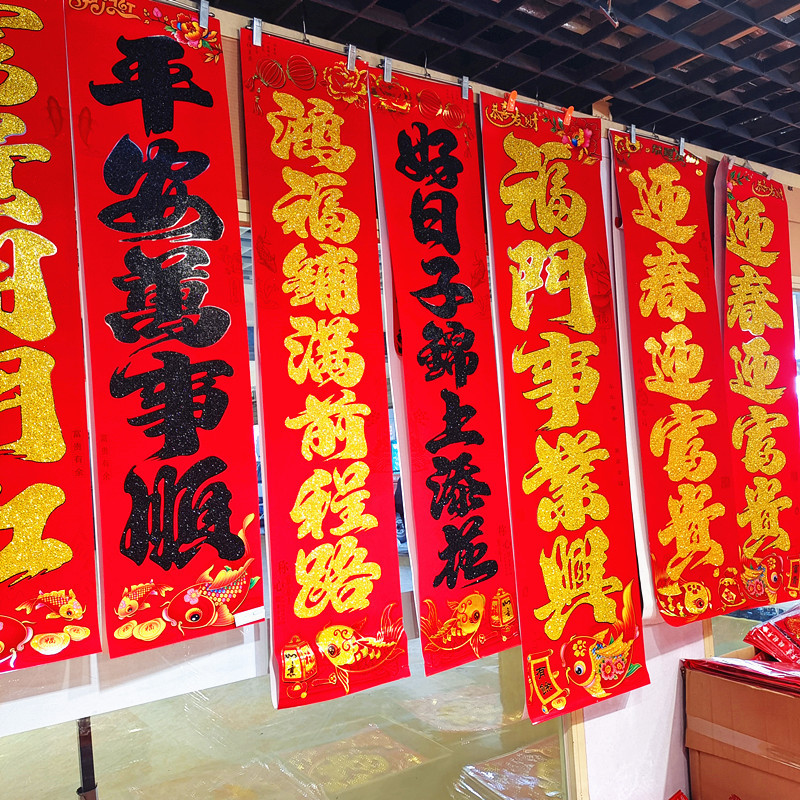 月月红
平安萬事順
鴻福鋪满前程路
好日子錦上添花
恭喜发财
福門事業興
迎春迎富貴
迎春迎富貴